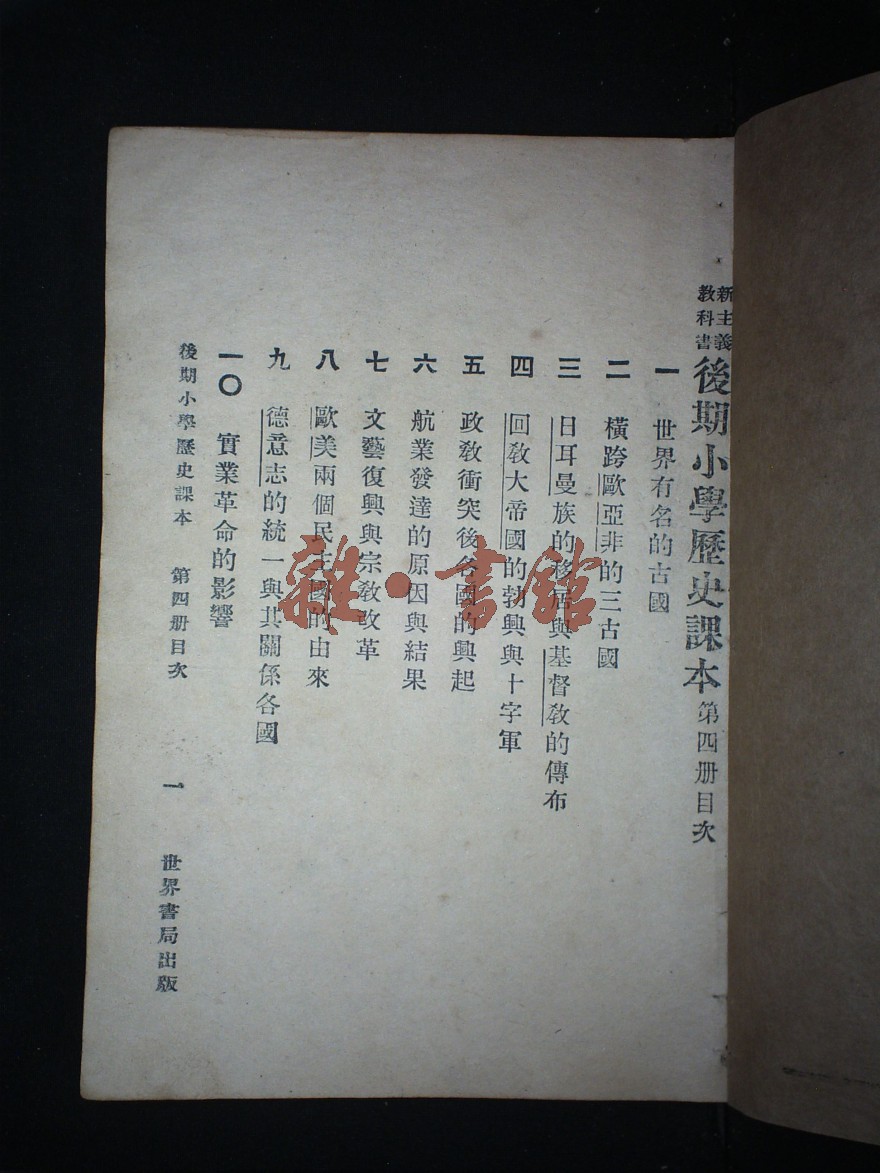 新主義教科書後期小學歷史課本第四册目次
一 世界有名的古國
二 橫跨歐亞非的三古國
三 日耳曼族的移居與基督教的傳布
四 回教大帝國的勃興與十字軍
五 政教衝突後各國的興起
六 航業發達的原因與結果
七 文藝復興與宗教改革
八 歐美兩個民主國的由來
九 德意志的統一與其關係各國
一〇 實業革命的影響
後期小學歷史課本 第四册目次 一 世界書局出版
雜·書館